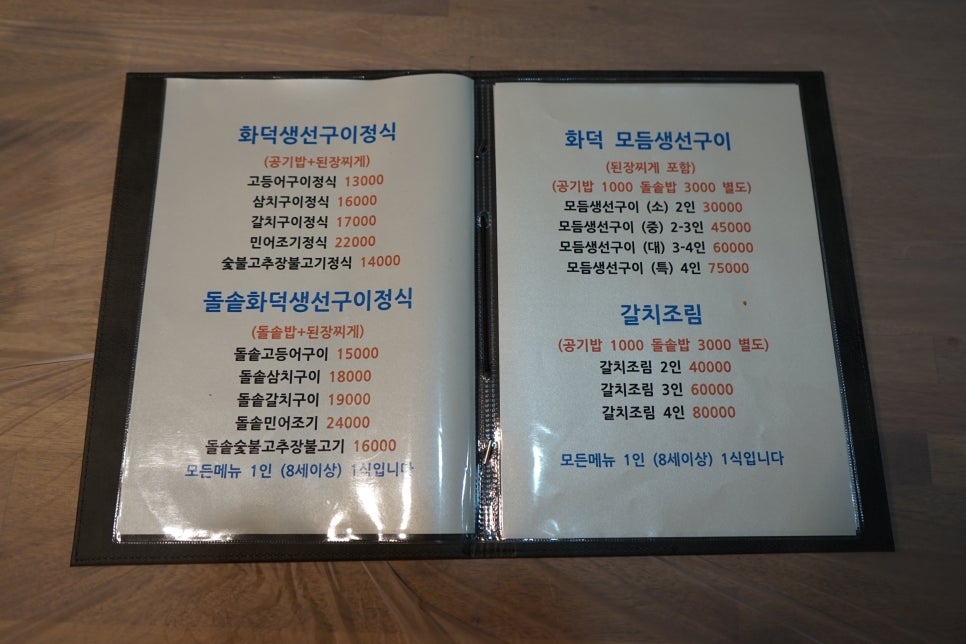 화덕생선구이정식
(공기밥+된장찌게)
고등어구이정식 13000
삼치구이정식 16000
갈치구이정식 17000
민어조기정식 22000
숯불고추장불고기정식 14000
돌솥화덕생선구이정식
(돌솥밥+된장찌게)
돌솥고등어구이 15000
돌솥삼치구이 18000
돌솥갈치구이 19000
돌솥민어조기 24000
돌솥숯불고추장불고기 16000
모든메뉴 1인 (8세이상) 1식입니다
화덕 모듬생선구이
(된장찌게 포함)
(공기밥 1000 돌솥밥 3000 별도)
모듬생선구이 (소) 2인 30000
모듬생선구이 (중) 2-3인 45000
모듬생선구이 (대) 3-4인 60000
모듬생선구이 (특) 4인 75000
갈치조림
(공기밥 1000 돌솥밥 3000 별도)
갈치조림 2인 40000
갈치조림 3인 60000
갈치조림 4인 80000
모든메뉴 1인 (8세이상) 1식입니다